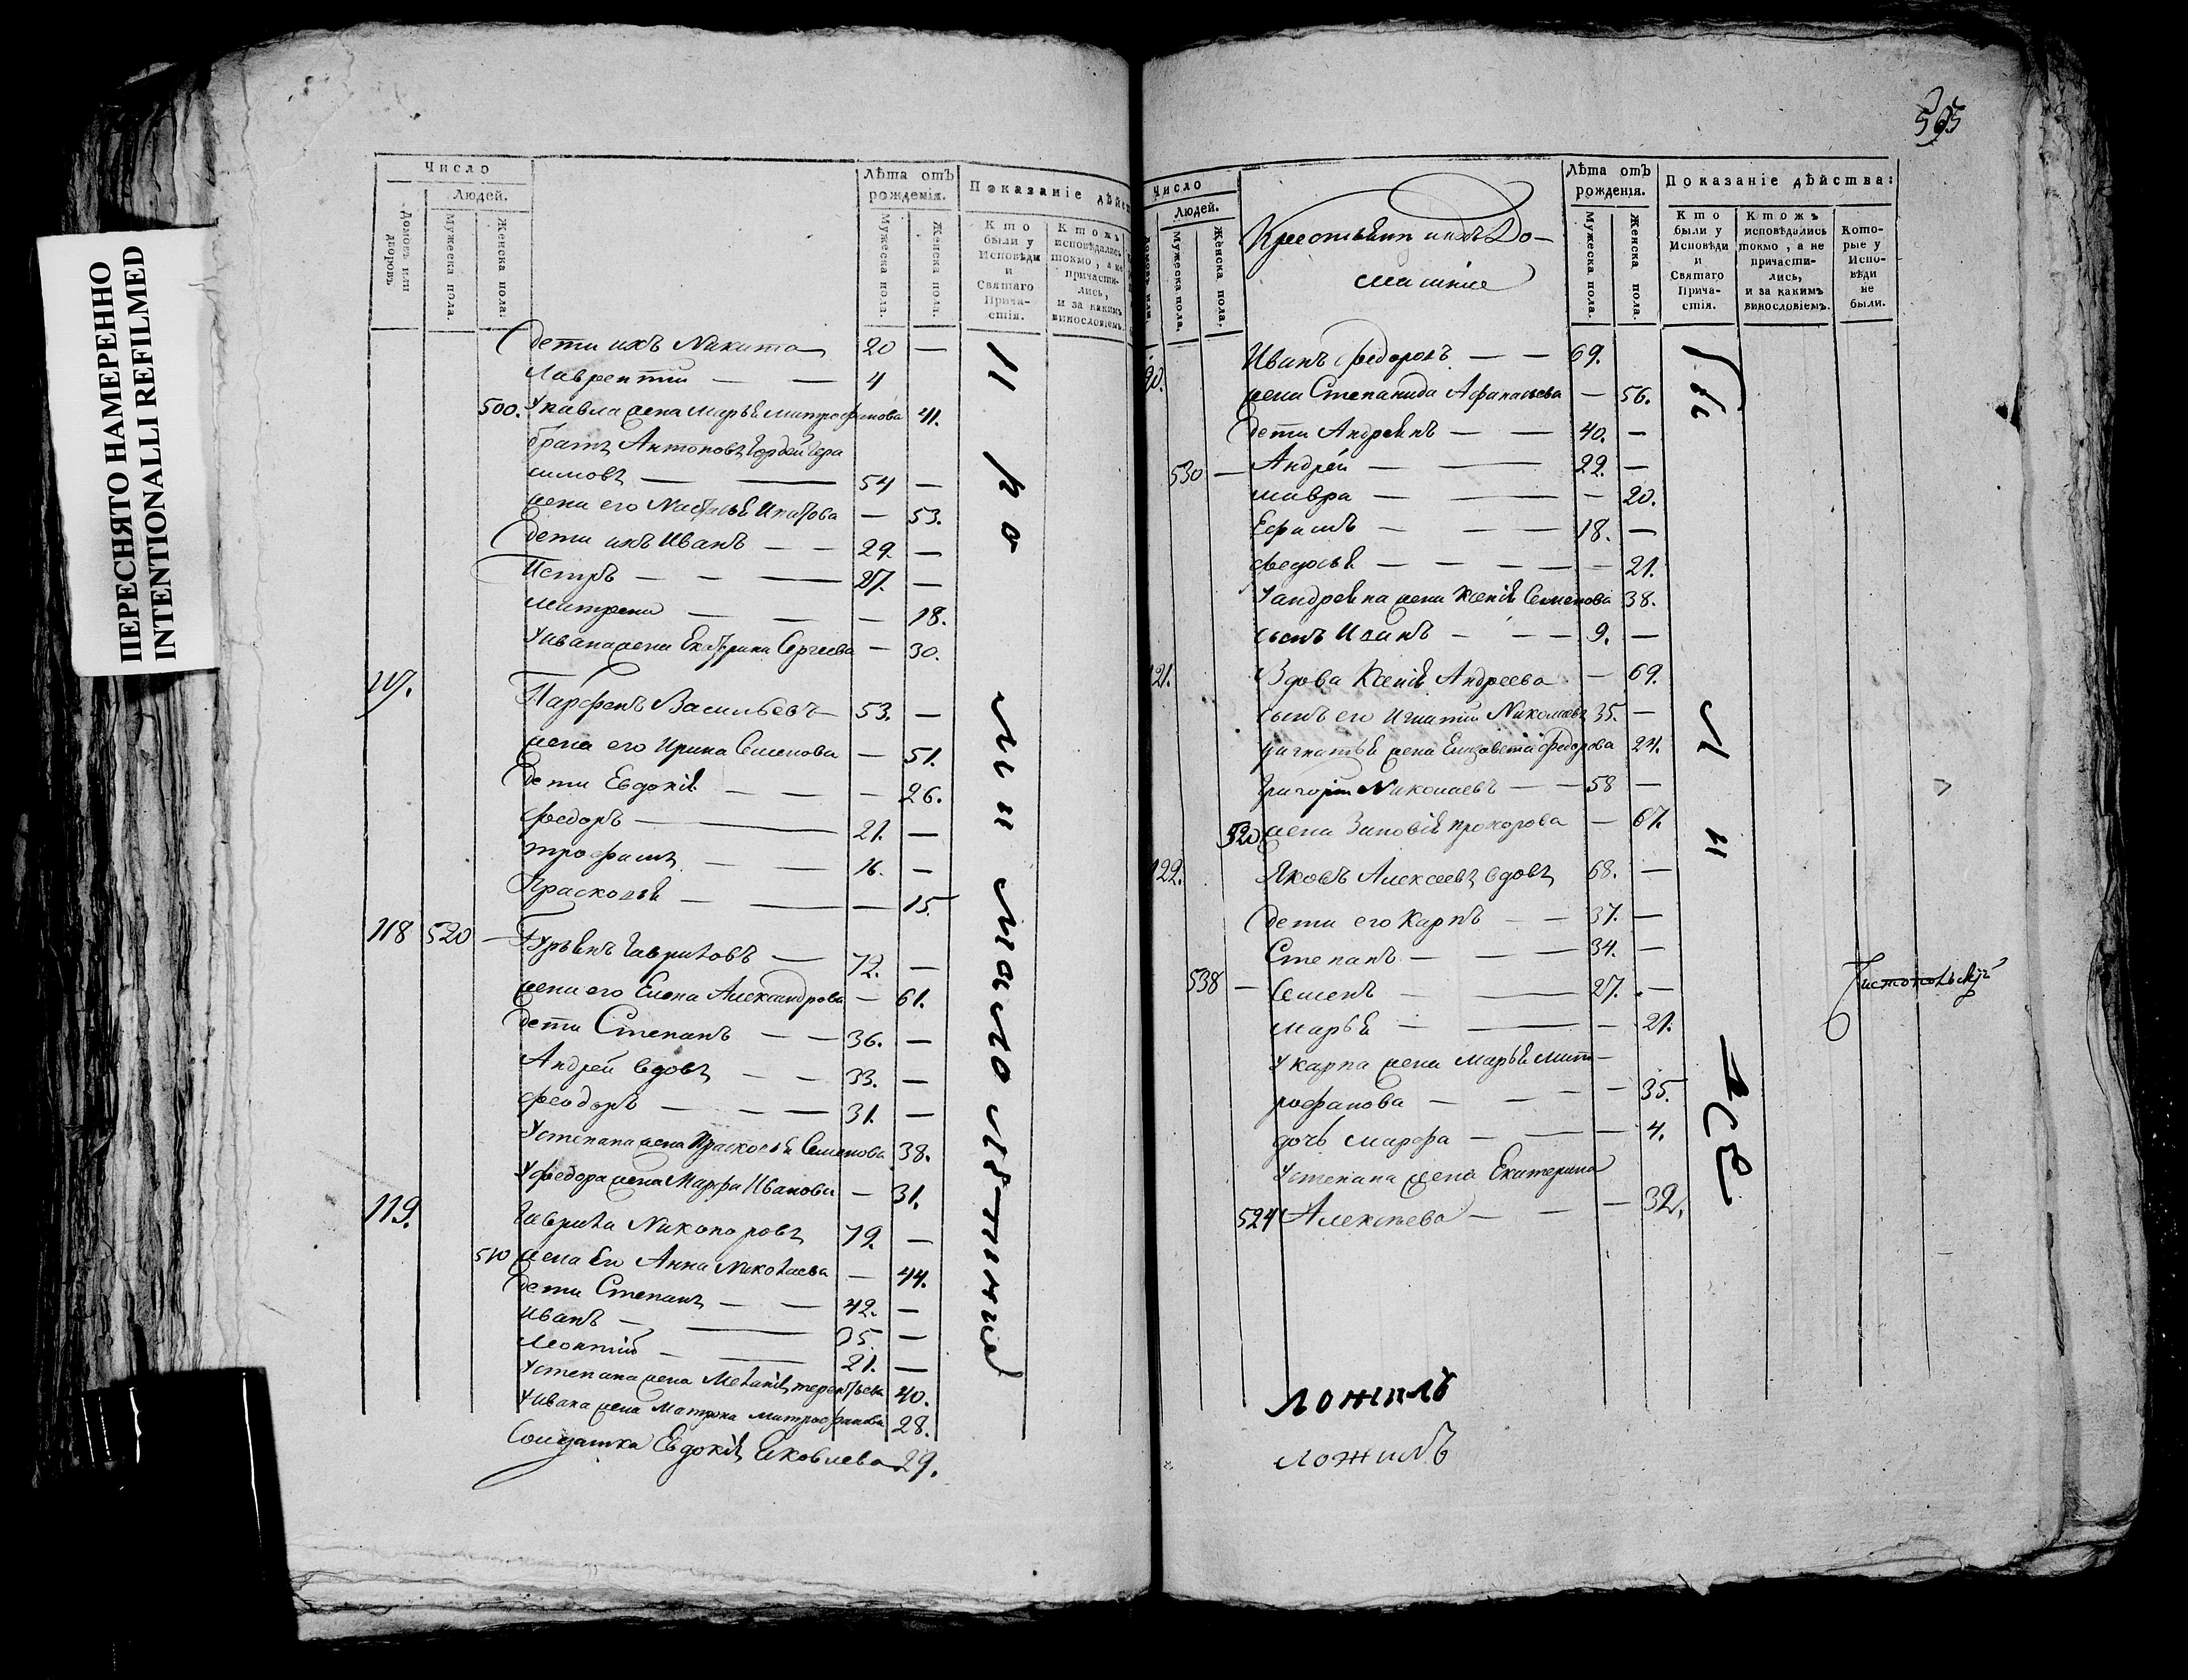 ПЕРЕСНЯТО НАМЕРЕННО
INTENTIONALLI REFILMED
Число
Людей.
Домовъ или дворовъ
Мужеска пола.
Женска пола.
Лѣта отъ рожденія.
Мужеска пола.
Женска пола.
Показаніе дѣйст
Кто были у Исповѣди и Святаго Причастія.
Ктожъ исповѣдались токмо, а не причастились, и за какимъ винословіемъ.
дети ихъ Никита 20 —
Лаврентій — — 4
500. У павла жена Марья митрофанова 41.
братъ Антоновъ Гордей Гера
симовъ — — 54 —
жена его Настасья Ипатова — 53.
дети ихъ Иванъ — — 29. —
Петръ — — — 27. —
матрена — — — 18.
У ивана жена Екатерина Сергеева — 30.
117. Парфенъ Васильевъ — 53. —
жена его Ирина Семенова — 51.
дети Евдокія — — — 26.
федоръ — 21. —
трофимъ — — 16. —
Прасковья — — — 15.
118 520 — Гурьянъ Гавриловъ — 72. —
жена его Елена Александрова — 61.
дети Степанъ — — 36. —
Андрей вдовъ — — 33. —
феодоръ — — — 31. —
У степана жена Прасковья Семенова 38.
У федора жена Марфа Иванова — 31.
119. Гаврила Никоноровъ 79. —
510 жена Ево Анна Николаева — 44.
дети Степанъ — — 42. —
иванъ — — 35. —
Леонтій — — 21. —
У степана жена Меланія терентьева 40.
У ивана жена Матрона митрофанова 28.
Солдатка Евдокія Яковлева 29.
565
Число
Людей.
Мужеска пола.
Женска пола.
Крестьянъ ихъ До-
машніе
Лѣта отъ рожденія.
Мужеска пола.
Женска пола.
Показаніе дѣйства:
Кто были у Исповѣди и Святаго Причастія.
Ктожъ исповѣдались токмо, а не причастились, и за какимъ винословіемъ.
Которые у Исповѣди не были.
Иванъ федоровъ — — 69.
жена Степанида Афанасьева — 56.
дети Андреянъ — — 40. —
530 — Андрей — — 22. —
мавра — — — 20.
Ефимъ — — — 18. —
федосья — — — — — 21.
У андреяна жена Ксенія Семенова 38.
сынъ Иванъ — — — 9. —
121. Вдова Ксенія Андреева — 69.
сынъ его Игнатій Николаевъ 35. —
У игнатья жена Елизавета федорова 24.
Григорій Николаевъ — — 58 —
520 жена Зиновія прохорова — 67.
122. Яковъ Алексеевъ вдовъ 68. —
дети его Карпъ — — 37. —
Степанъ — — — 34. —
538 — Семенъ — — 27. —
марья — — — 21.
У карпа жена Марья Мит-
рофанова — — — 35.
дочь марфа — — — 4.
У степана жена Екатерина
524 Алексѣева — — — 32.
ложилъ
ложилъ